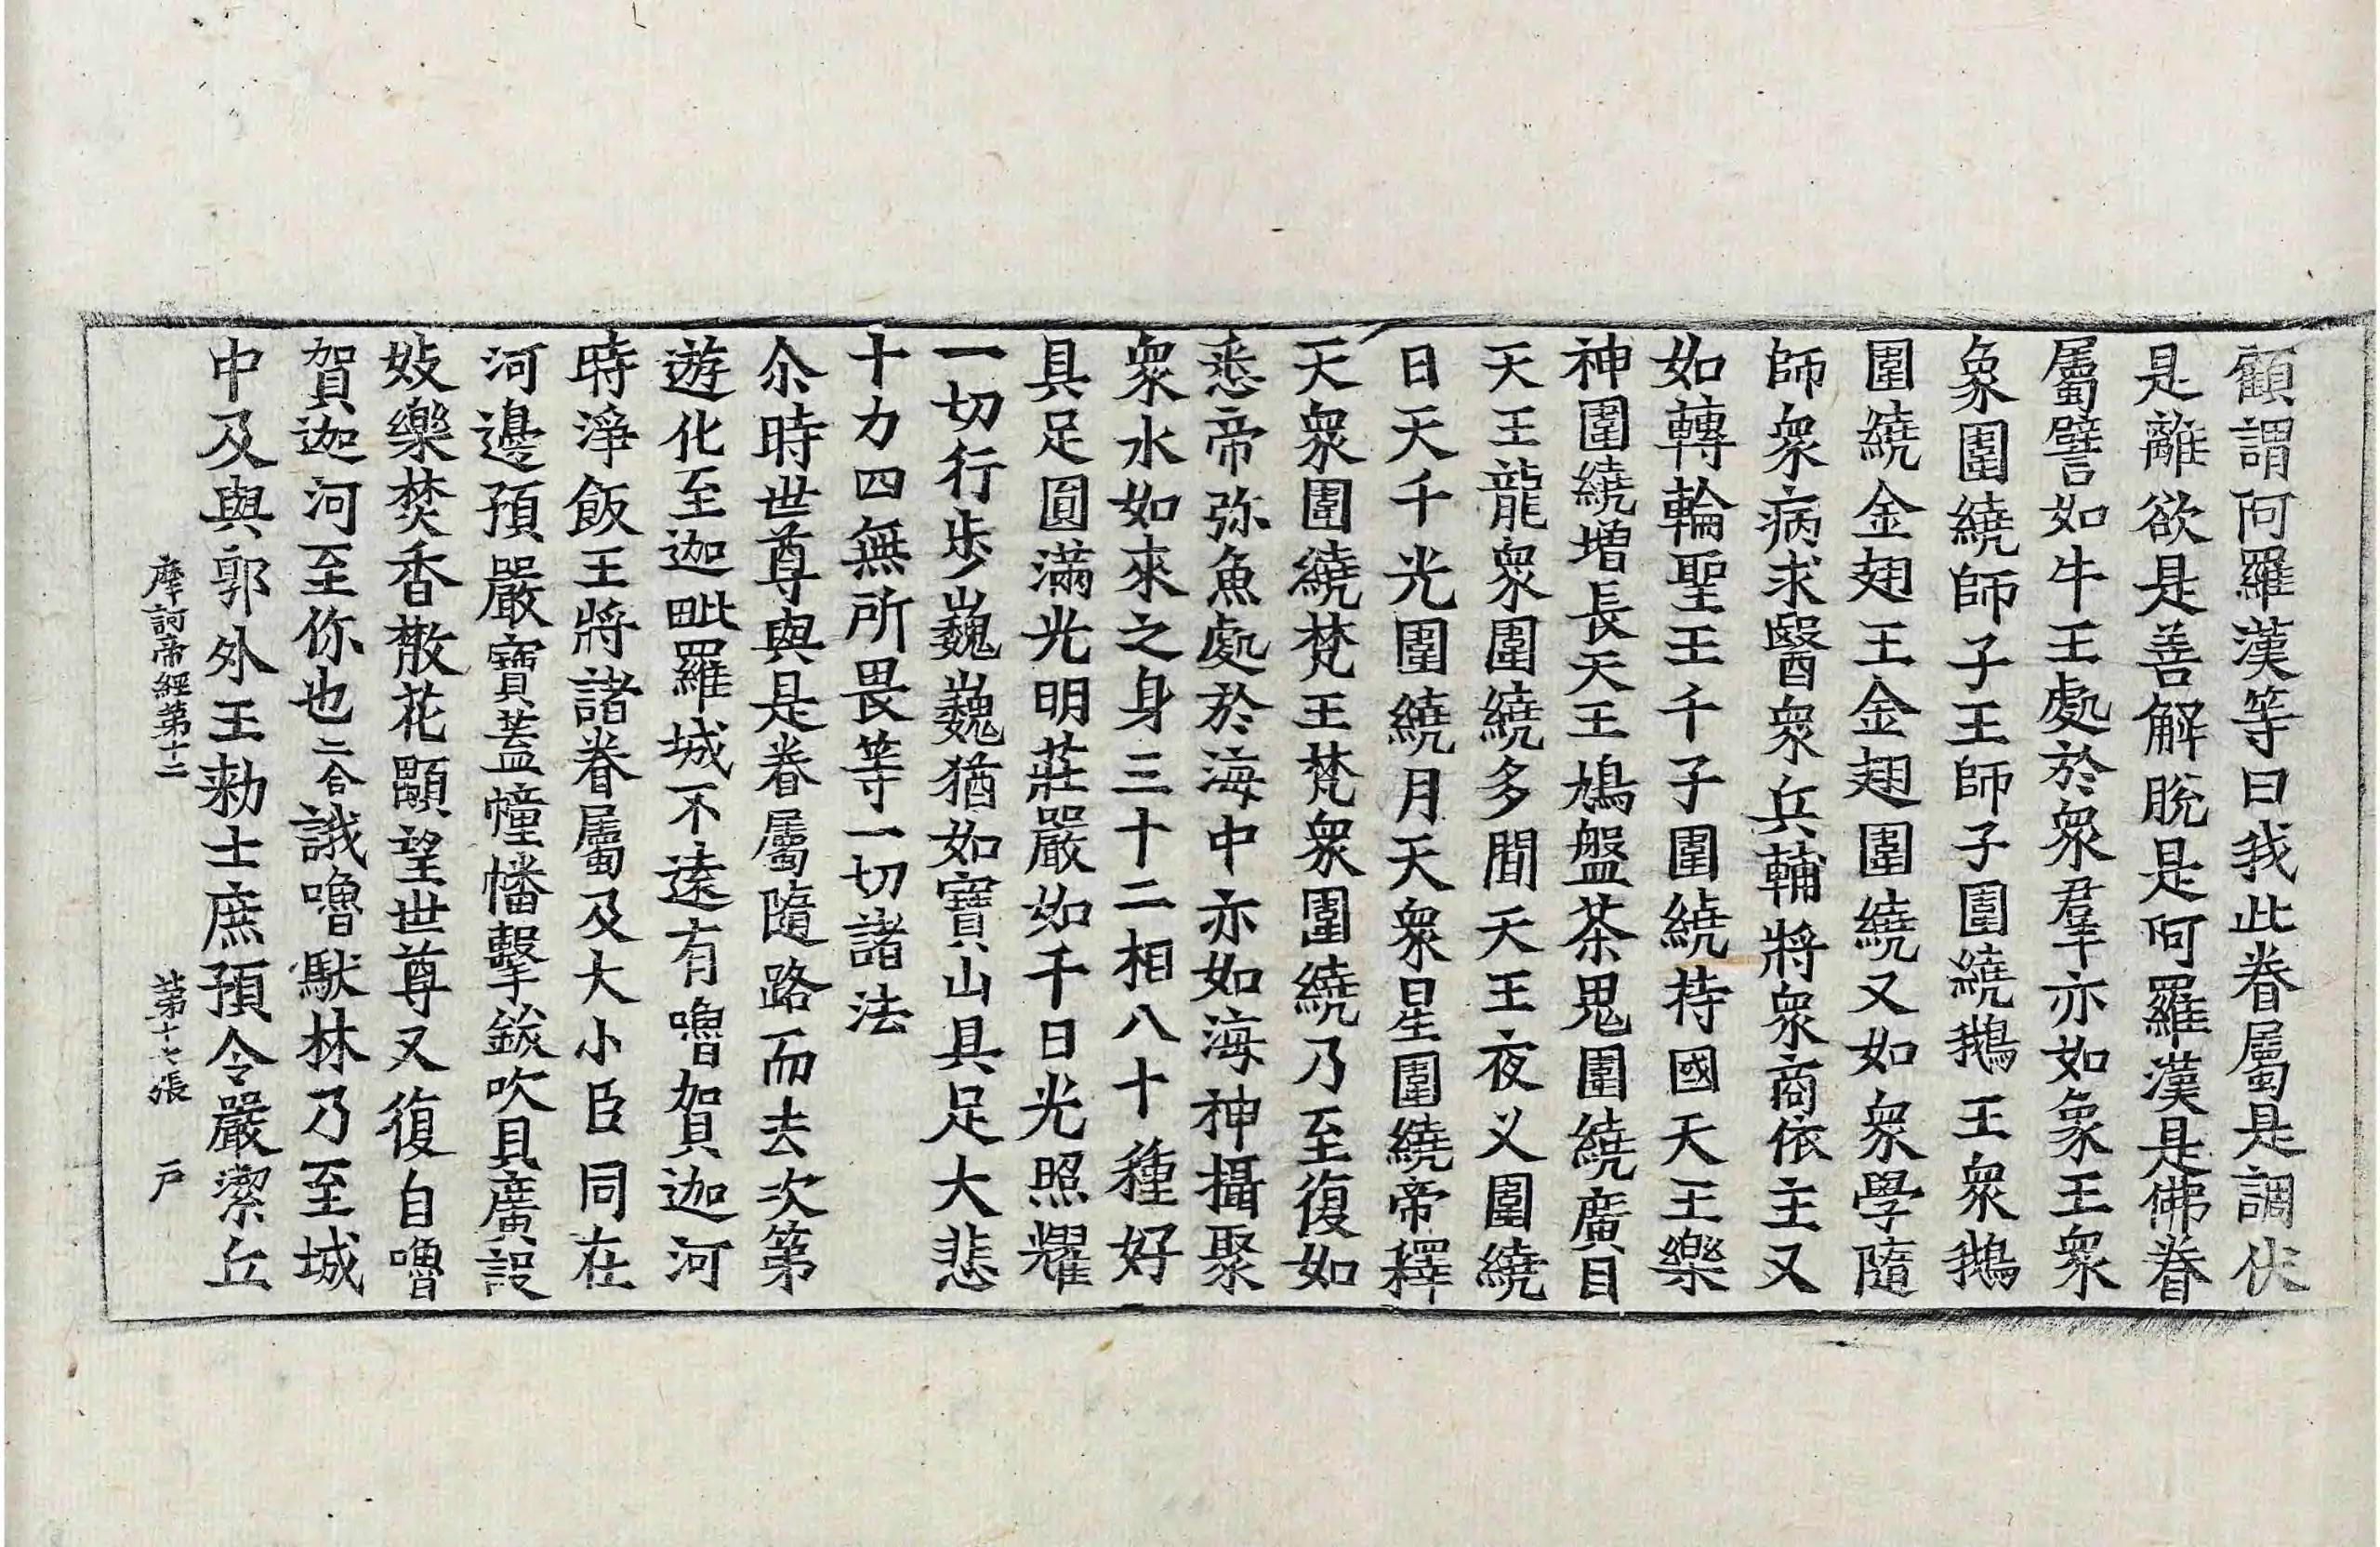 顧謂阿羅漢等曰我此眷屬是調伏
是離欲是善解脫是阿羅漢是佛眷
屬譬如牛王處於衆羣亦如象王衆
象圍繞師子王師子圍繞鵝王衆鵝
圍繞金翅王金翅圍繞又如衆學隨
師衆病求醫衆兵輔將衆商依主又
如轉輪聖王千子圍繞持國天王樂
神圍繞增長天王鳩盤茶鬼圍繞廣目
天王龍衆圍繞多聞天王夜义圍繞
日天千光圍繞月天衆星圍繞帝釋
天衆圍繞梵王梵衆圍繞乃至復如
悉帝弥魚處於海中亦如海神攝聚
衆水如來之身三十二相八十種好
具足圓滿光明莊嚴如千日光照耀
一切行步巍巍猶如寶山具足大悲
十力四無所畏等一切諸法
尒時世尊與是眷屬隨路而去次第
遊化至迦毗羅城不遠有嚕賀迦河
時淨飯王將諸眷屬及大小臣同在
河邊預嚴寶蓋幢幡擊鈸吹貝廣設
妓樂焚香散花顒望世尊又復自嚕
賀迦河至你也二合誐嚕馱林乃至城
中及與郭外王勑士庶預令嚴潔丘
摩訶帝經第十二 第十七張 户